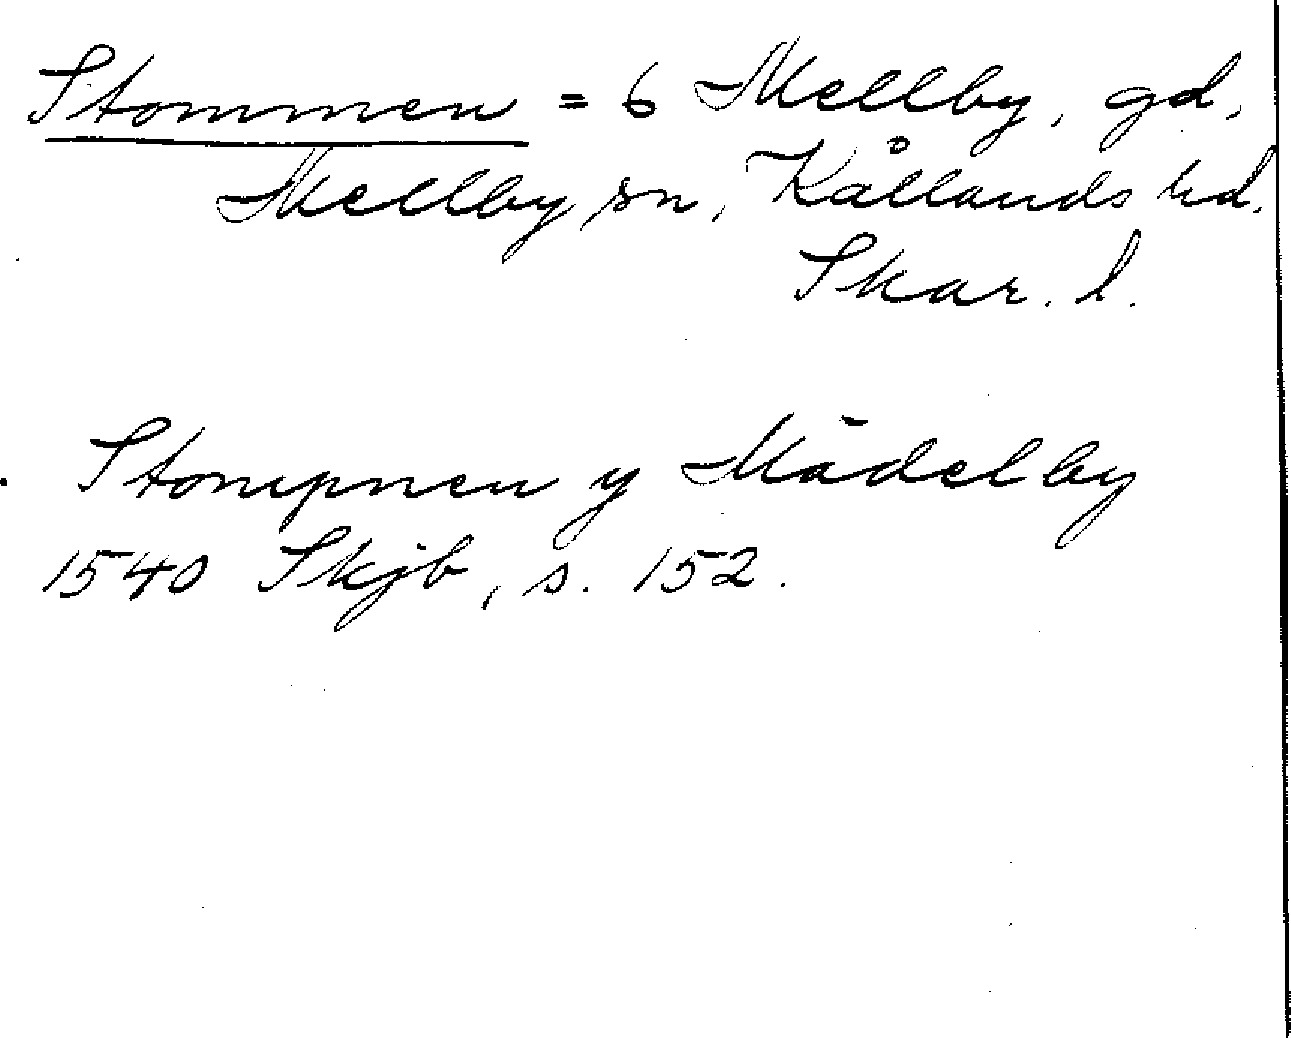 Stommen = 6 Mellby, gd,
Mellby sn, Kållands hd.
Skar. l.
Stompnen y Mädelby
1540 Skjb, s. 152.